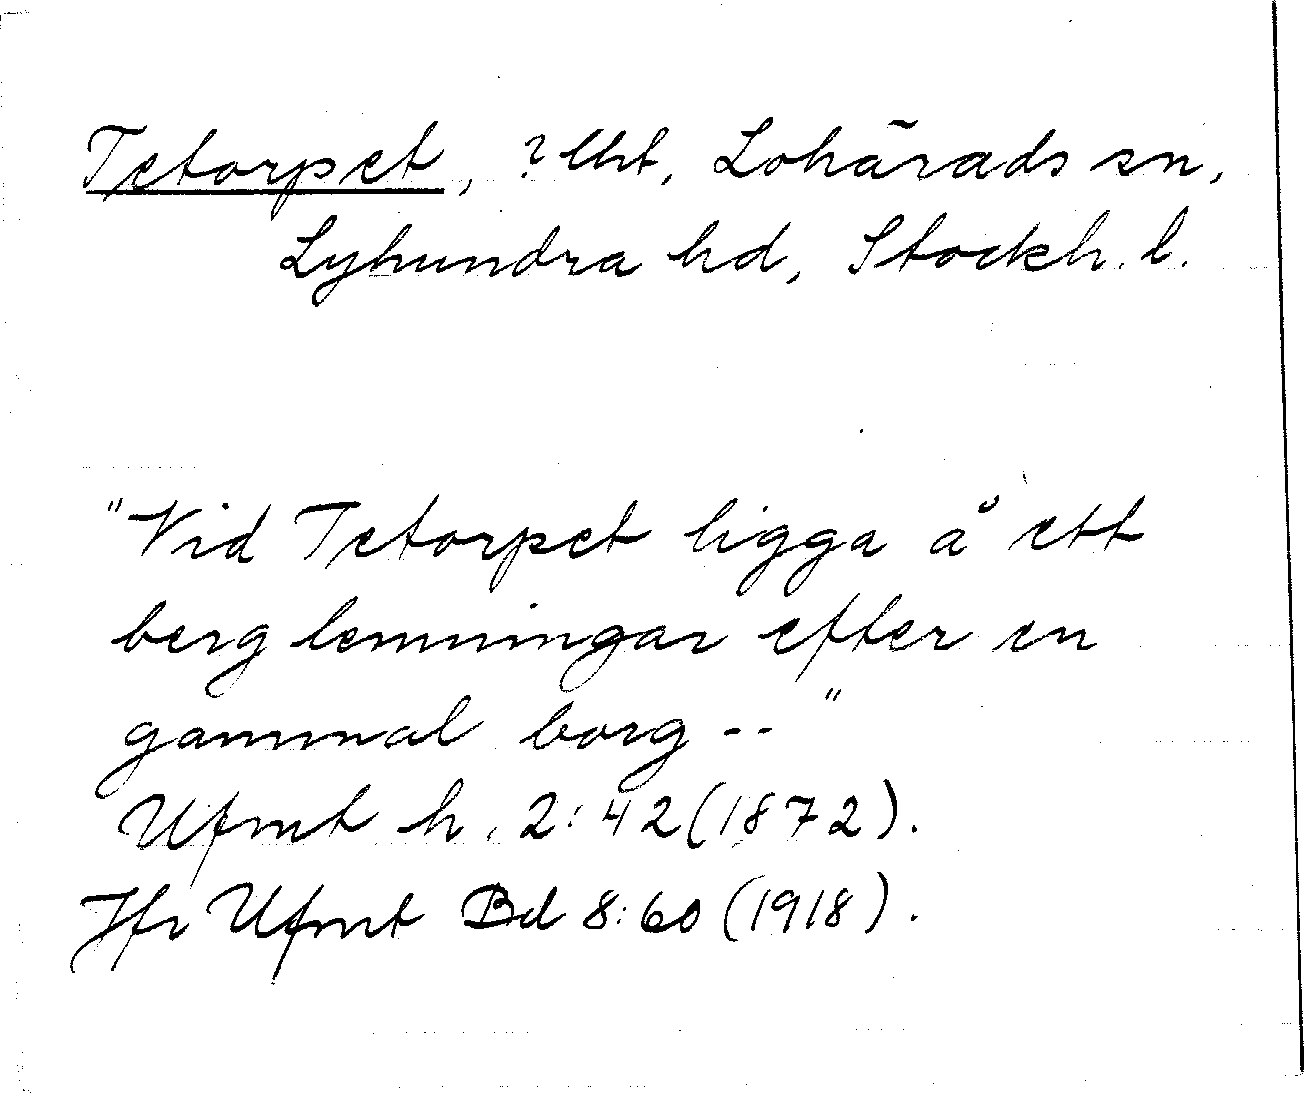 Tetorpet, ? lht, Lohärads sn,
Lyhundra hd, Stockh. l.
"Vid Tetorpet ligga å ett
berg lemningar efter en
gammal borg -- "
Ufmt h. 2:42 (1872).
Jfr Ufmt Bd 8:60 (1918).